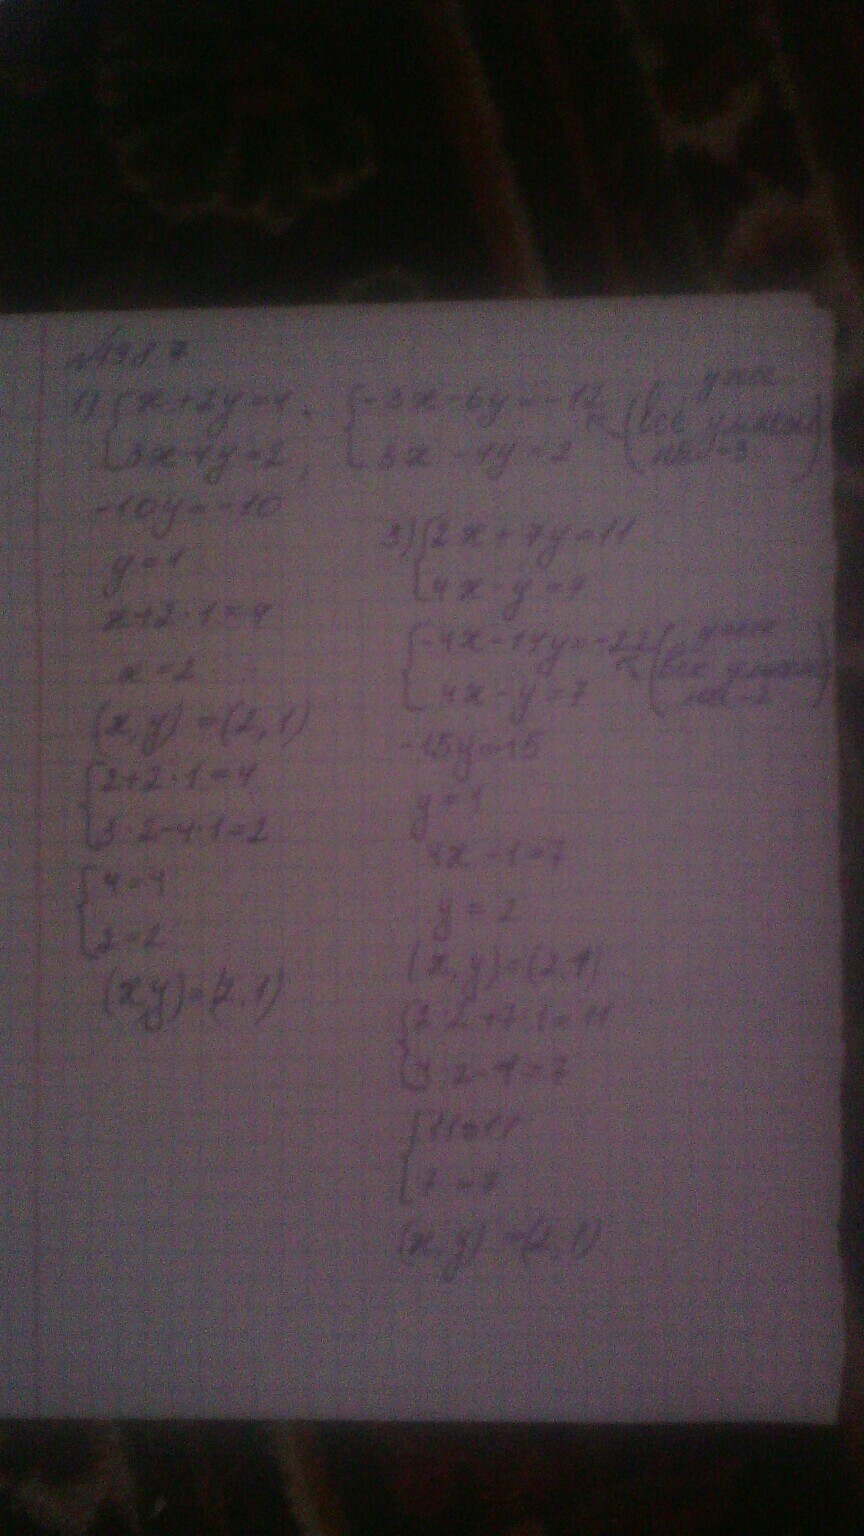 1) { x+2y=4
{ 3x-4y=2,
{ -3x-6y=-12
{ 3x-4y=2
(всё
на -3)
-10y=-10
y=1
x+2·1=4
x=2
(x,y)=(2,1)
{ 2+2·1=4
{ 3·2-4·1=2
{ 4=4
{ 2=2
(x,y)=(2,1)
3) { 2x+7y=11
{ 4x-y=7
{ -4x-14y=-22
{ 4x-y=7
(всё
на -2)
-15y=15
y=1
4x-1=7
y=2
(x,y)=(2,1)
{ 2·2+7·1=11
{ 4·2-1=7
{ 11=11
{ 7=7
(x,y)=(2,1)